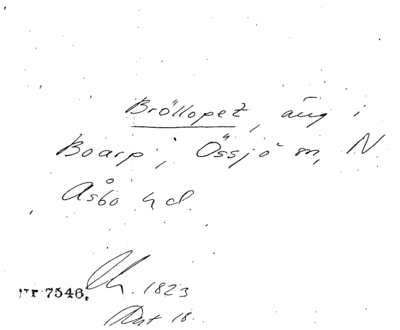 Bröllopet, äng i
Boarp, Össjö sn, N
Åsbo hd.
nr 7546. 1823
18.